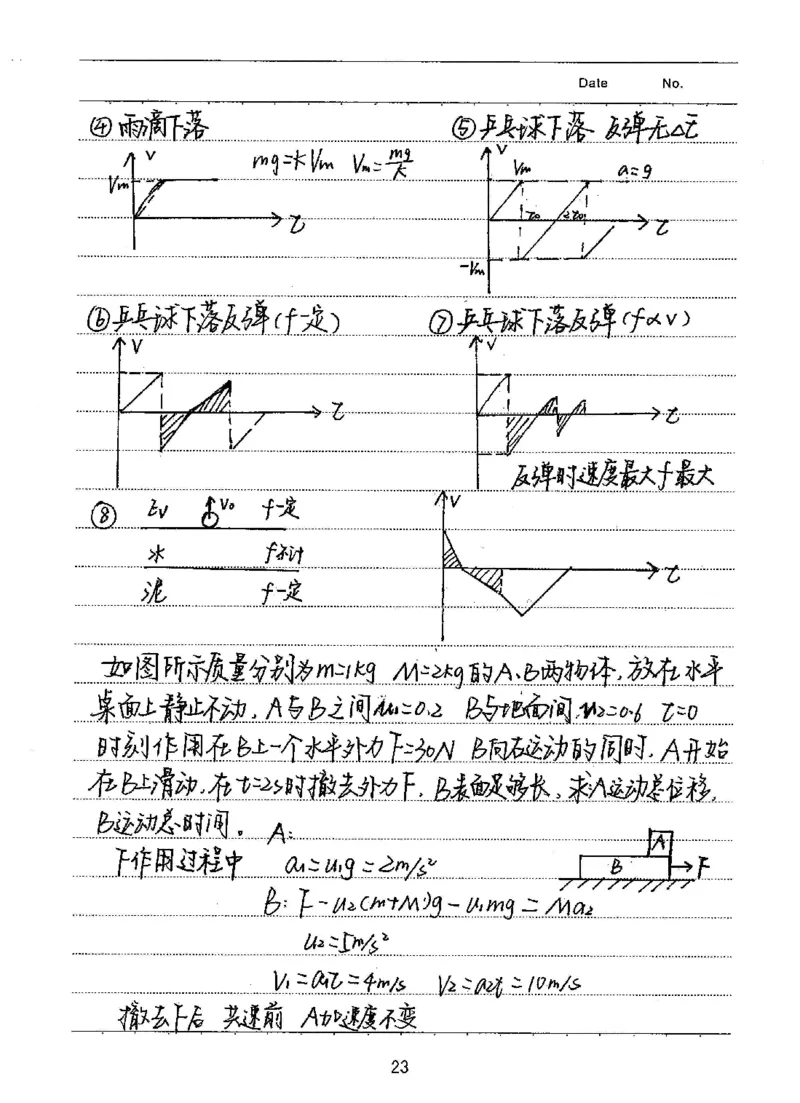 Date No.
④ 雨滴下落
V
Vm
mg=kVm Vm=mg/k
t
⑤ 乒乓球下落 反弹无Δt
V
Vm
a=g
t0 2t0
t
-Vm
⑥ 乒乓球下落反弹(f一定)
V
t
⑦ 乒乓球下落反弹(f∝v)
V
t
反弹时速度最大f最大
⑧ Ev V0 f一定
水 f不计
泥 f一定
V
t
如图所示质量分别为m=1kg M=2kg的A、B两物体,放在水平
桌面上静止不动,A与B之间u1=0.2 B与地面间u2=0.6 t=0
时刻作用在B上一个水平外力F=30N B向右运动的同时,A开始
在B上滑动,在t=2s时撤去外力F,B表面足够长,求A运动总位移,
B运动总时间。 A:
F作用过程中 a1=u1g=2m/s²
A
B
F
B: F-u2(m+M)g-u1mg=Ma2
u2=5m/s²
V1=a1t=4m/s V2=a2t=10m/s
撤去F后 共速前 A加速度不变
23